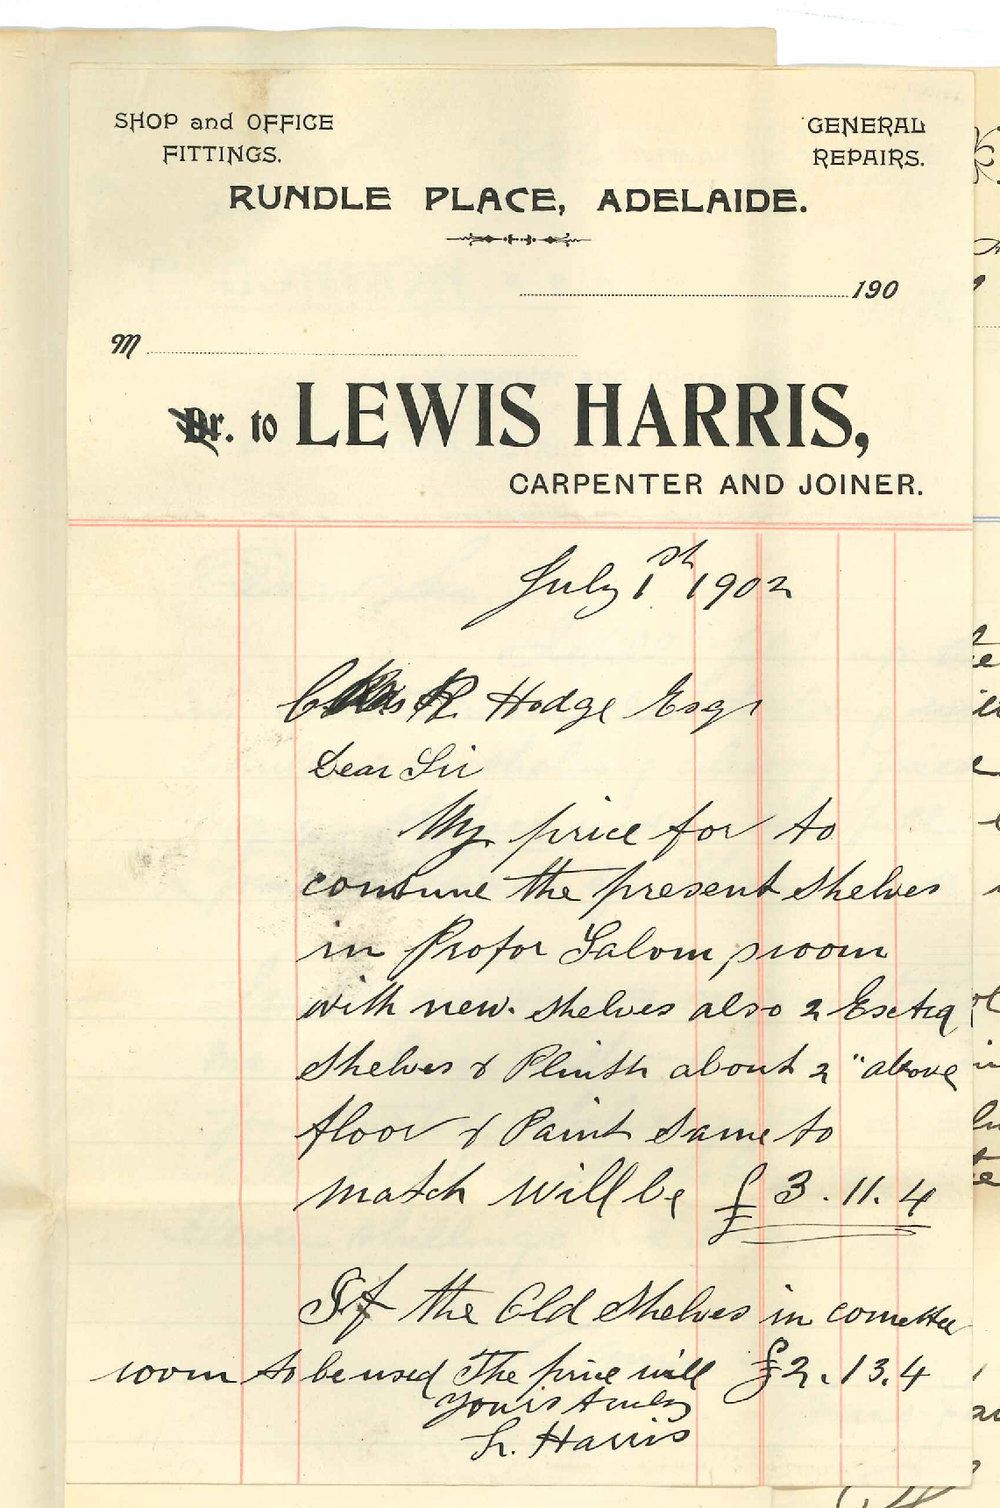 SHOP and OFFICE
FITTINGS.
GENERAL
REPAIRS.
RUNDLE PLACE, ADELAIDE.
190
M
Dr. to LEWIS HARRIS,
CARPENTER AND JOINER.
July 1st 1902
Chas R. Hodge Esqr
Dear Sir
My price for to
contune the present shelves
in Profor Salom, s room
with new. shelves also 2 Exctra
Shelves & Plinth about 2" above
floor & Paint same to
match will be £ 3. 11. 4
If the Old Shelves in comettee
room to be used The price will £2. 13. 4
Yours truley
L. Harris